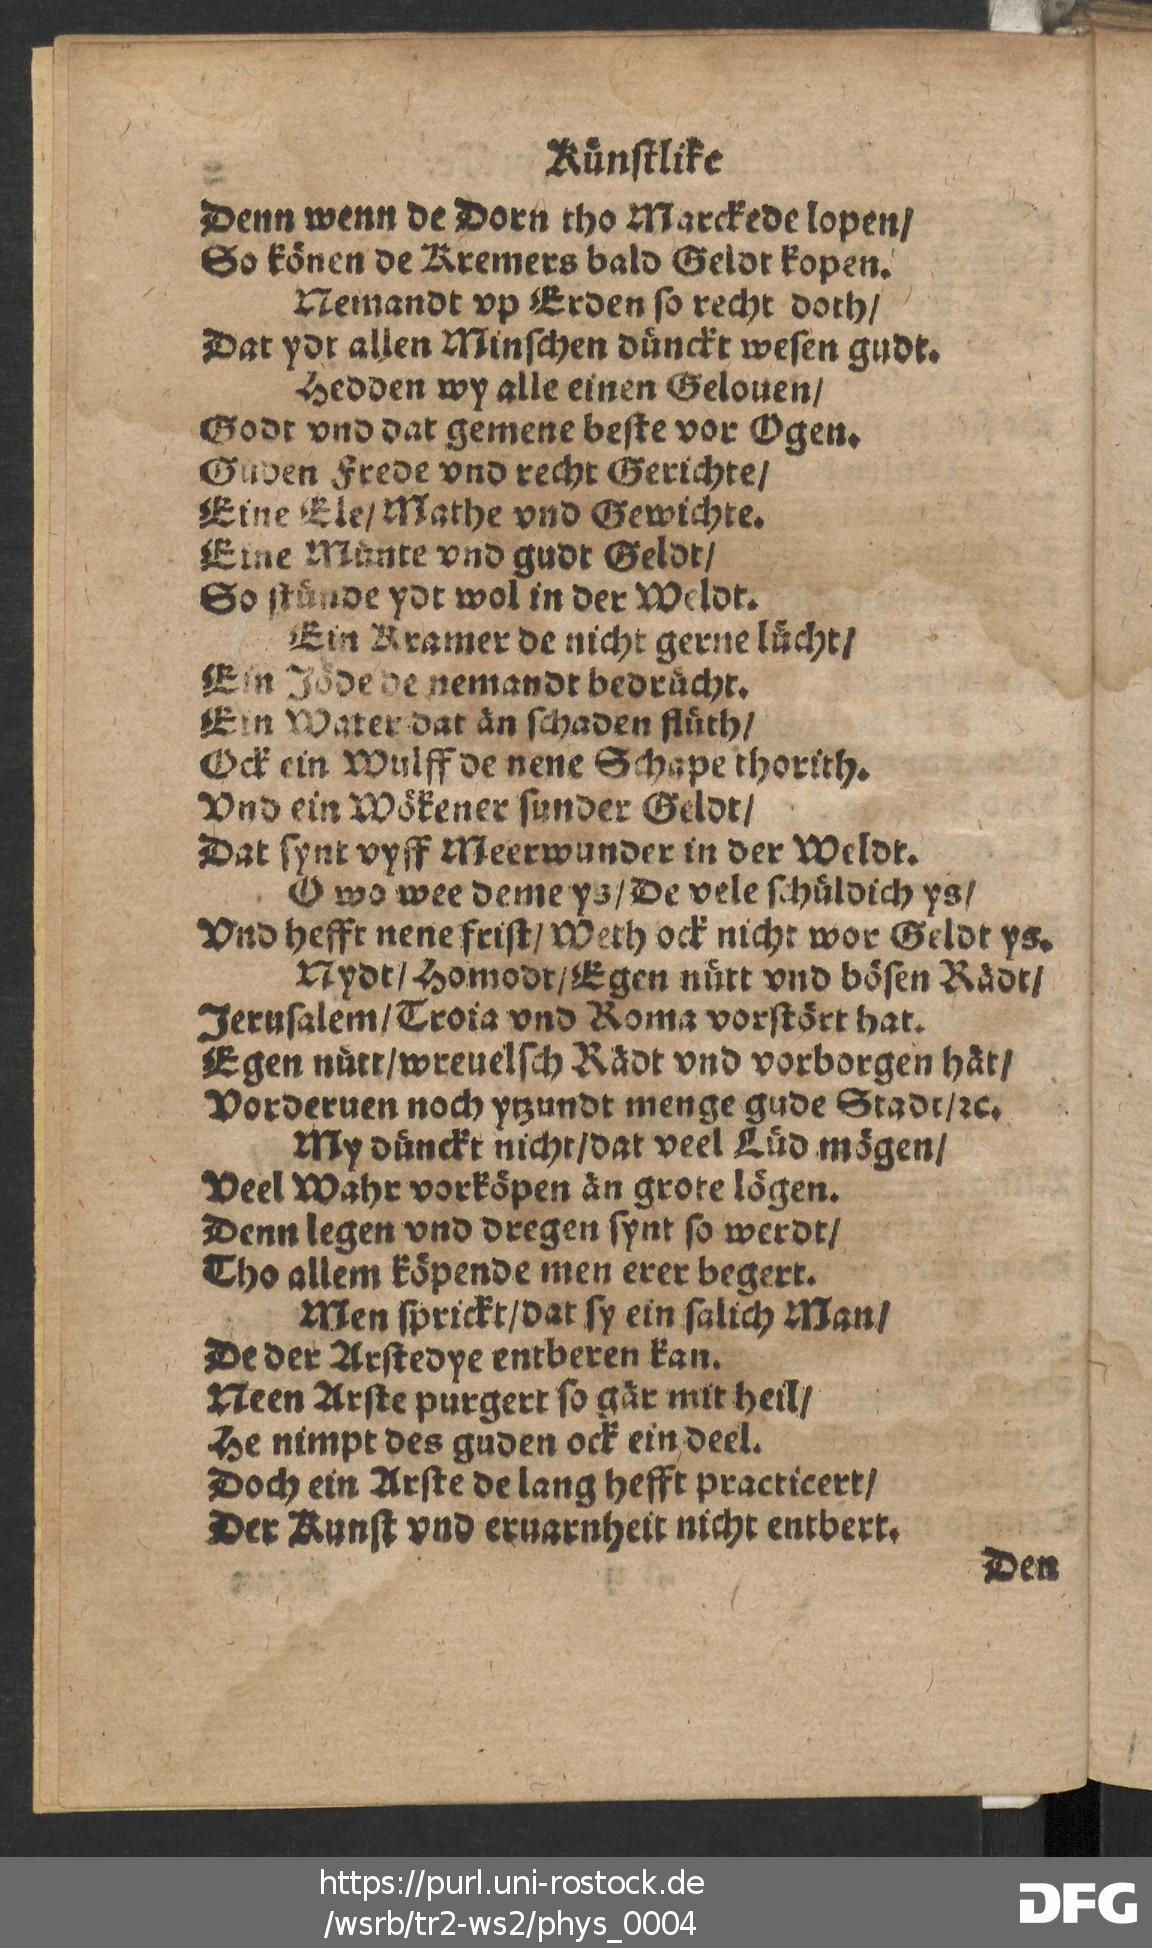 Künstlike
Denn wenn de Dorn tho Marckede lopen/
So könen de Kremers bald Geldt kopen.
Nemandt vp Erden so recht doth/
Dat ydt allen Minschen dünckt wesen gudt.
Hedden wy alle einen Gelouen/
Godt vnd dat gemene beste vor Ogen.
Guden Frede vnd recht Gerichte/
Eine Ele/ Mathe vnd Gewichte.
Eine Münte vnd gudt Geldt/
So stünde ydt wol in der Weldt.
Ein Kramer de nicht gerne lücht/
Ein Jöde de nemandt bedrücht.
Ein Water dat ån schaden flüth/
Ock ein Wulff de nene Schape thorith.
Vnd ein Wökener sunder Geldt/
Dat synt vyff Meerwunder in der Weldt.
O wo wee deme ys/ De vele schüldich ys/
Vnd hefft nene frist/ Weth ock nicht wor Geldt ys.
Nydt/ Homodt/ Egen nütt vnd bösen Rädt/
Jerusalem/ Troia vnd Roma vorstört hat.
Egen nütt/ wreuelsch Rädt vnd vorborgen hät/
Vorderuen noch ytzundt menge gude Stadt/ ꝛc.
My dünckt nicht/ dat veel Lüd mögen/
Veel Wahr vorköpen än grote lögen.
Denn legen vnd dregen synt so werdt/
Tho allem köpende men erer begert.
Men sprickt/ dat sy ein salich Man/
De der Arstedye entberen kan.
Neen Arste purgert so gär mit heil/
He nimpt des guden ock ein deel.
Doch ein Arste de lang hefft practicert/
Der Kunst vnd eruarnheit nicht entbert.
Den
https://purl.uni-rostock.de
/wsrb/tr2-ws2/phys_0004
DFG